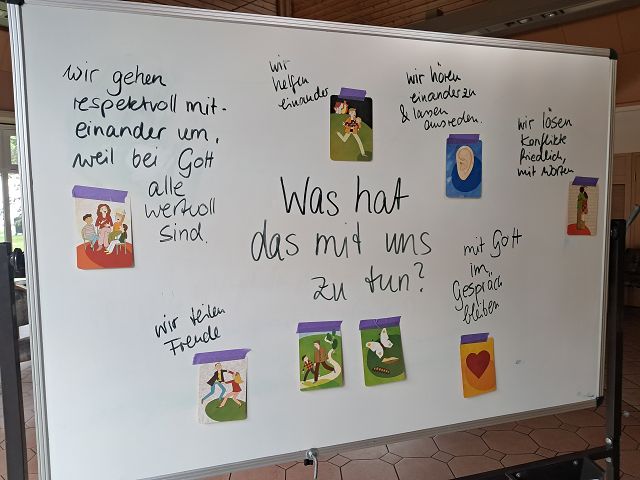 wir gehen
respektvoll mit-
einander um,
weil bei Gott
alle
wertvoll
sind.
wir
helfen
einander
wir hören
einander zu
& lassen
ausreden.
wir lösen
Konflikte
friedlich,
mit Worten
Was hat
das mit uns
zu tun?
mit Gott
im
Gespräch
bleiben
wir teilen
Freude